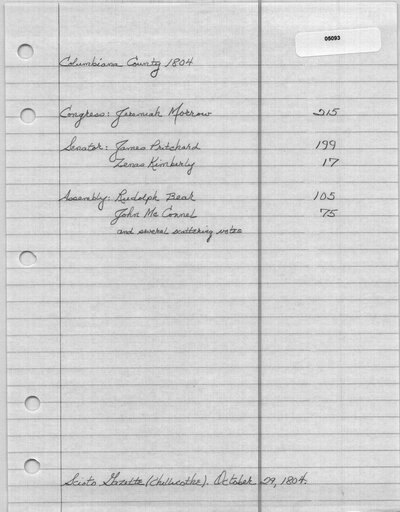 05093
Columbiana County 1804
Congress: Jeremiah Morrow 215
Senator: James Pritchard 199
Zenas Kimberly 17
Assembly: Rudolph Bear 105
John McConnel 75
and several scattering votes
Scioto Gazette (Chillicothe). October 29, 1804.